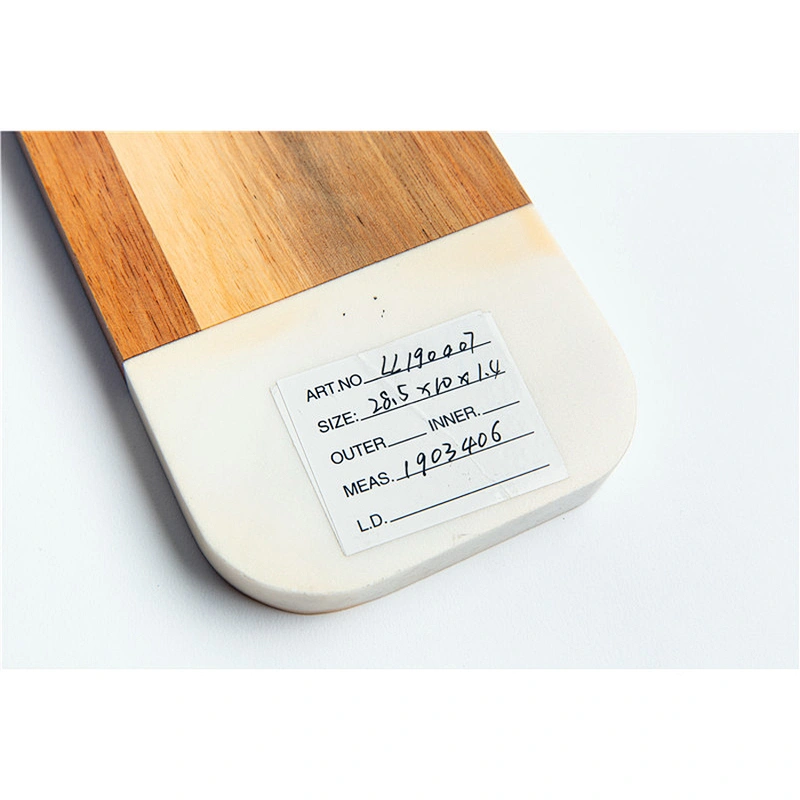 ART.NO LL190007
SIZE: 28.5 x 10 x 1.4
OUTER____ INNER.____
MEAS. 1903406
L.D.